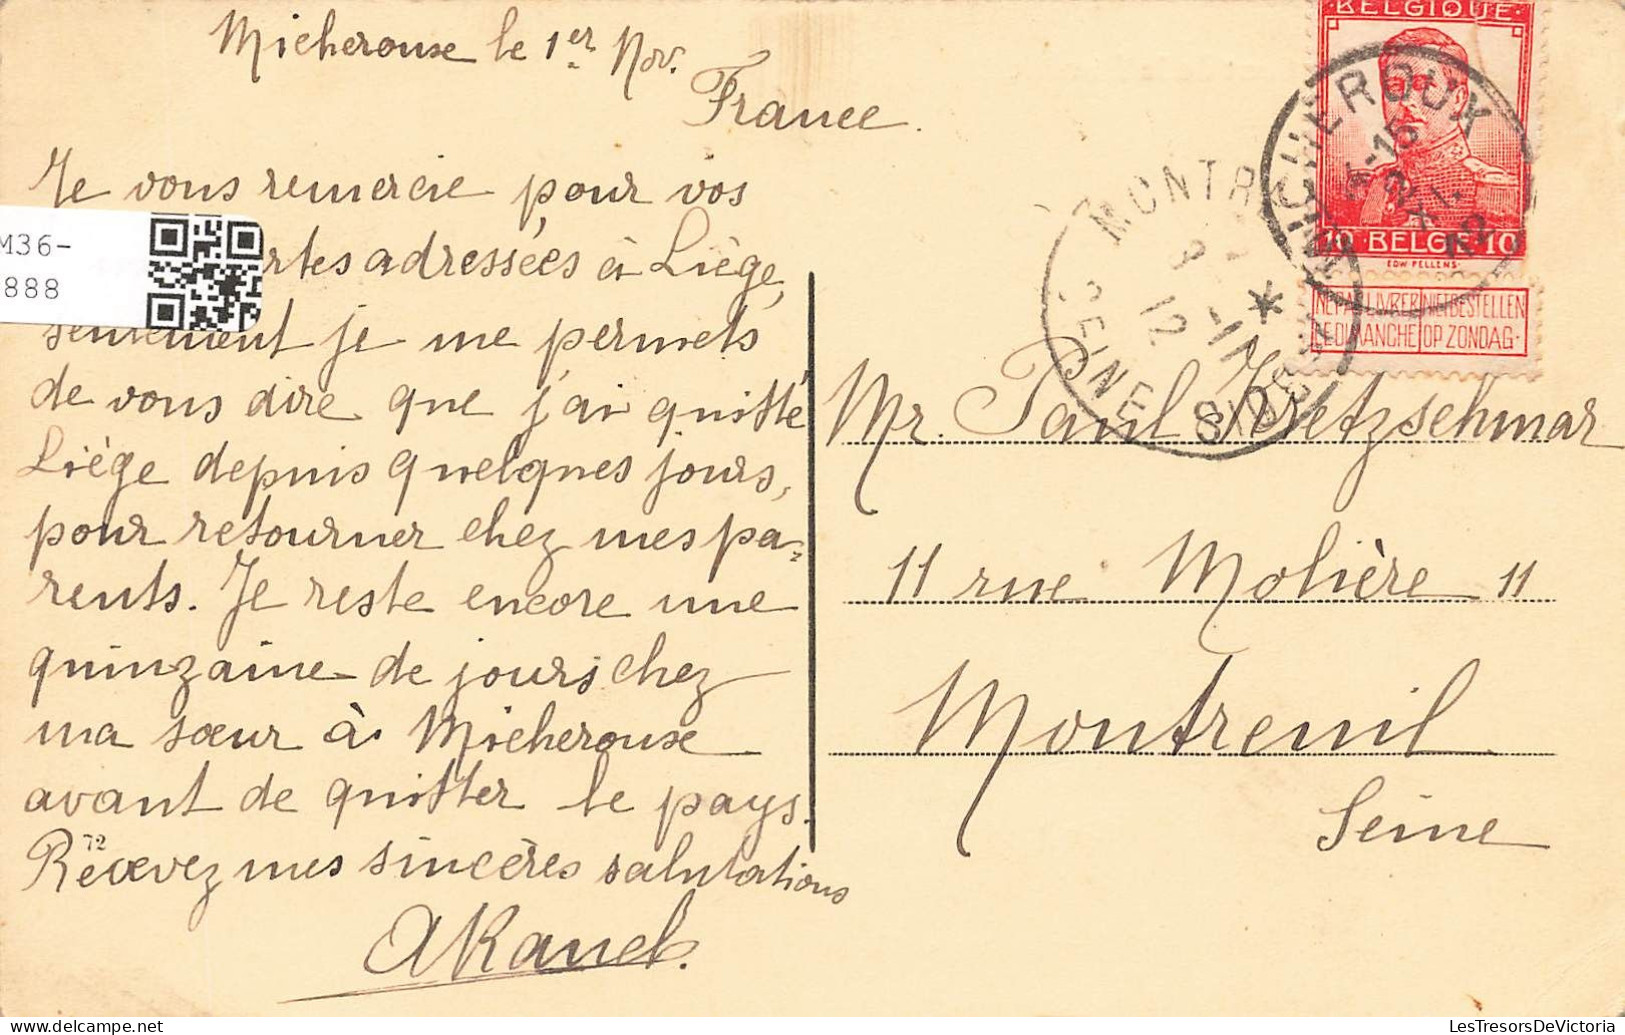 Micheroux le 1er Nov.
France.
Je vous remercie pour vos
rtes adressées à Liège,
seulement je me permets
de vous dire que j'ai quitté
Liège depuis quelques jours,
pour retourner chez mes pa-
rents. Je reste encore une
quinzaine de jours chez
ma sœur à Micheroux
avant de quitter le pays.
72
Recevez mes sincères salutations
M36-
888
BELGIQUE
10 BELGIË 10
EDW PELLENS
NE PAS LIVRER NIET BESTELLEN
LE DIMANCHE OP ZONDAG
MICHEROUX
MONTR
SEINE
Mr. Paul Kretzschmar
11 rue Molière 11
Montreuil
Seine
www.LesTresorsDeVictoria.com